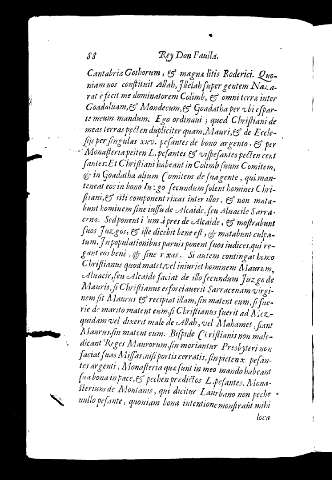 88 Rey Don Favila.
Cantabria Gothorum, & magna litis Roderici. Quo-
niam nos constituit Allah, Ihelah super gentem Naza-
rat & fecit me dominatorem Colimb, & omni terra inter
Goadaluam, & Mondecum, & Goadatha per vbi espar-
te meum mandum. Ego ordinaui; quod Christiani de
meas terras pecten dupliciter quam, Mauri, & de Eccle-
sijs per singulas xxv. pesantes de bono argento, & per
Monasteria peiten L. pesantes & vispesantes pecten cent
santes: Et Christiani habeant in Colimb suum Comitem,
& in Goadatha alium Comitem de suagente, qui man-
teneat eos in bono Iuzgo secundum solent homines Chri-
stiani, & isti component rixas inter illos, & non mata-
bunt hominem sine iussu de Alcaide, seu Aluacile Sarra-
ceno. Sed ponent de Alcaide, & mostrabunt
suos Iuzgos, & ille dicebit bene est, & matabunt culpa-
tum, In populationibus paruis ponent suos iudices, qui re-
gant eos bene, & sine rixas. Si autem contingat homo
Christianus quod matet, vel iniuriet hominem Maurum,
Aluacir, seu Alcaide faciat de illo secundum Iuzgo de
Mauris, si Christianus esforciauerit Sarracenam virgi-
nem sit Maurus & recipiat illam, sin matent eum, si fue-
rit de marito matent eum: si Christianus fuerit ad Mez-
quidam vel dixerit male de Allah, vel Mahamet, fiant
Maurus, sin matent eum. Bispi de Christianis non male-
dicant Reges Maurorum, sin moriantur Presbyteri non
faciat suas Missas, nisi portis cerratis, sin peiten x pesan-
tes argenti, Monasteria quæ sunt in meo mando habeant
sua bona in pace, & pechen prædictos L. pesantes. Mona-
sterium de Montanis, qui dicitur Laurbano non peche
nullo pesante, quoniam bona intentione monstrant mihi
loca